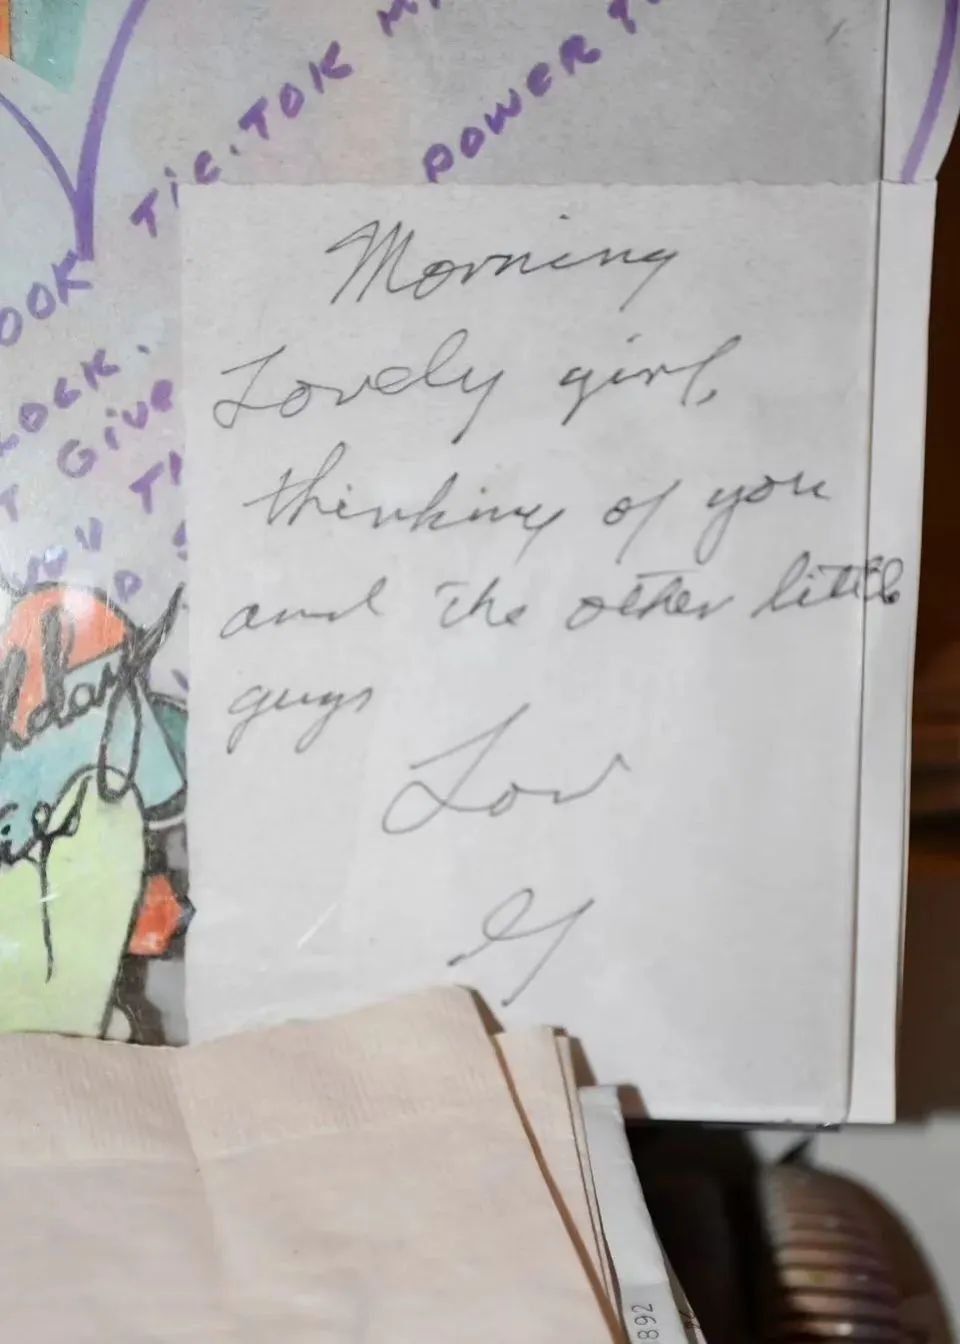 TIC.TOK
POWER
OOK
Give
Morning
Lovely girl,
thinking of you
and the other little
guys
Lov
G
892